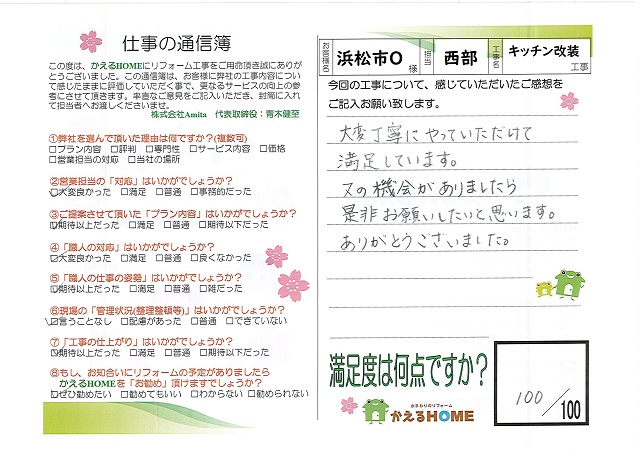 仕事の通信簿
この度は、かえるHOMEにリフォーム工事をご用命頂き誠にありが
とうございました。この通信簿は、お客様に弊社の工事内容につい
て感じたままに評価していただく事で、更なるサービスの向上の参
考にさせて頂きます。率直なご意見をご記入いただき、封筒に入れ
て担当者へお渡しくださいませ。
株式会社Amita 代表取締役：青木健至
①弊社を選んで頂いた理由は何ですか?(複数可)
□プラン内容 □評判 □専門性 □サービス内容 □価格
□営業担当の対応 □当社の場所
②営業担当の「対応」はいかがでしょうか?
☑大変良かった □満足 □普通 □事務的だった
③ご提案させて頂いた「プラン内容」はいかがでしょうか?
☑期待以上だった □満足 □普通 □期待以下だった
④「職人の対応」はいかがでしょうか?
☑大変良かった □満足 □普通 □良くなかった
⑤「職人の仕事の姿勢」はいかがでしょうか?
☑期待以上だった □満足 □普通 □雑だった
⑥現場の「管理状況(整理整頓等)」はいかがでしょうか?
☑言うことなし □配慮があった □普通 □できていない
⑦「工事の仕上がり」はいかがでしょうか?
☑期待以上だった □満足 □普通 □期待以下だった
⑧もし、お知合いにリフォームの予定がありましたら
かえるHOMEを「お勧め」頂けますでしょうか?
☑ぜひ勧めたい □勧めてもいい □わからない □勧められない
お客様名 浜松市O 様 担当 西部 工事名 キッチン改装 工事
今回の工事について、感じていただいたご感想を
ご記入お願い致します。
大変丁寧にやっていただけて
満足しています。
又の機会がありましたら
是非お願いしたいと思います。
ありがとうございました。
満足度は何点ですか?
100/100
水まわりのリフォーム
かえるHOME